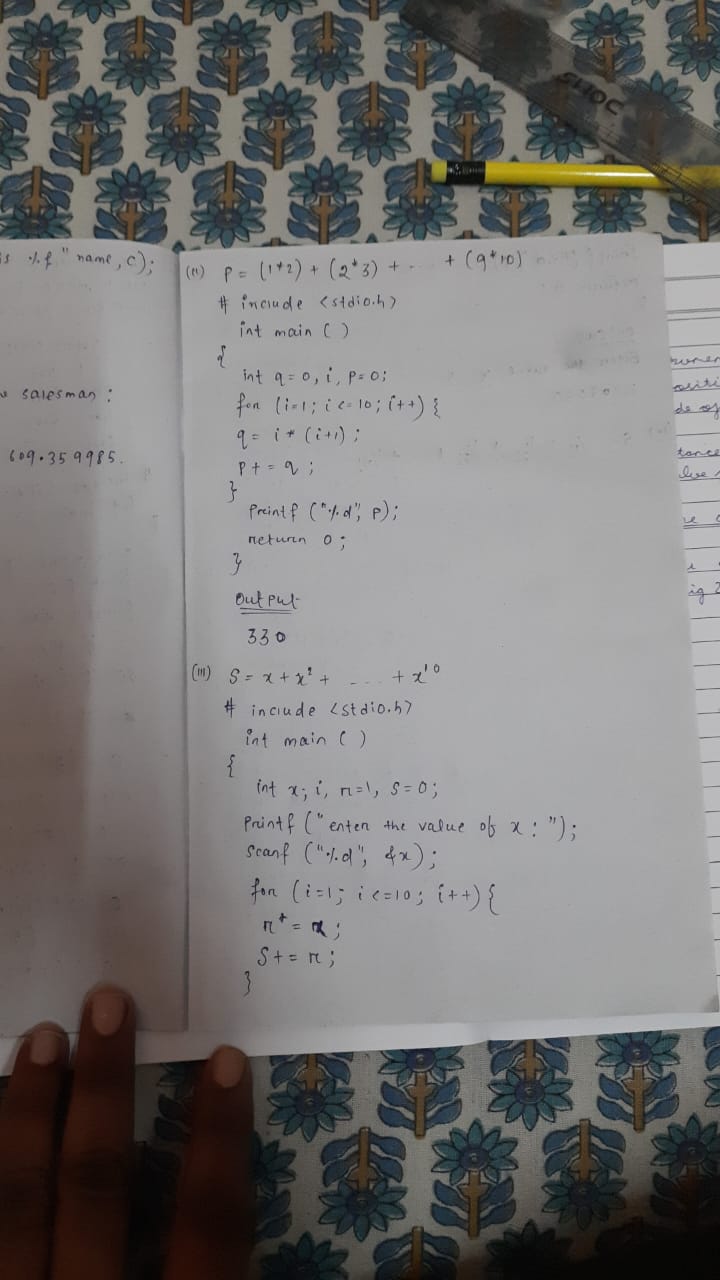 % f " name, c);
salesman :
609.359985.
(11) P = (1*2) + (2*3) + ... + (9*10)
# include <stdio.h>
int main ( )
{
int q = 0, i, P = 0;
for (i=1; i <= 10; i++) {
q = i * (i+1) ;
P+ = q ;
}
Printf ("%d", P);
return 0 ;
}
Output
330
(111) S = x + x² + .... + x¹⁰
# include <stdio.h>
int main ( )
{
int x, i, r=1, S=0;
Printf (" enter the value of x : ");
Scanf ("%d", &x);
for (i=1; i <=10; i++) {
r* = x ;
S+ = r ;
}